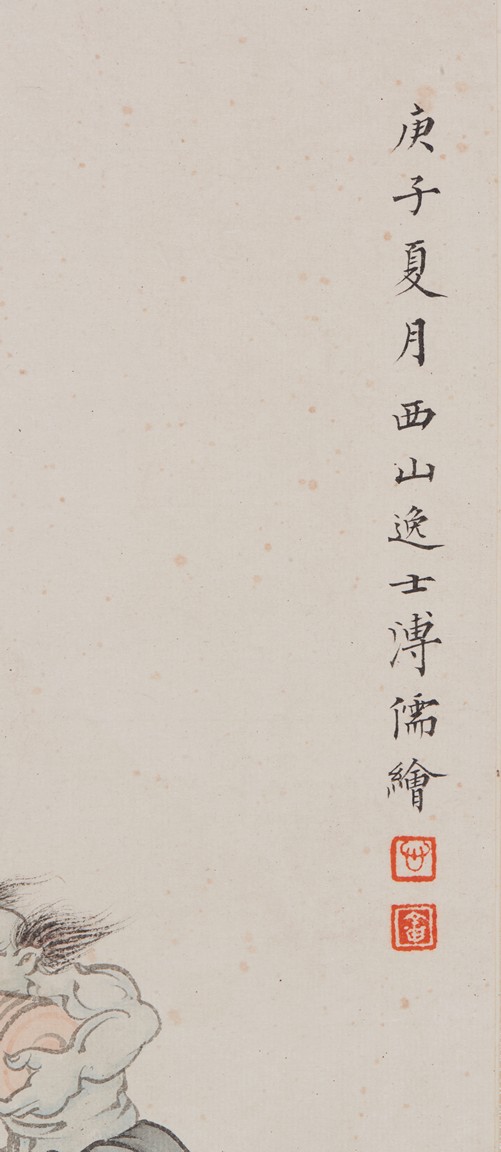 庚子夏月西山逸士溥儒繪